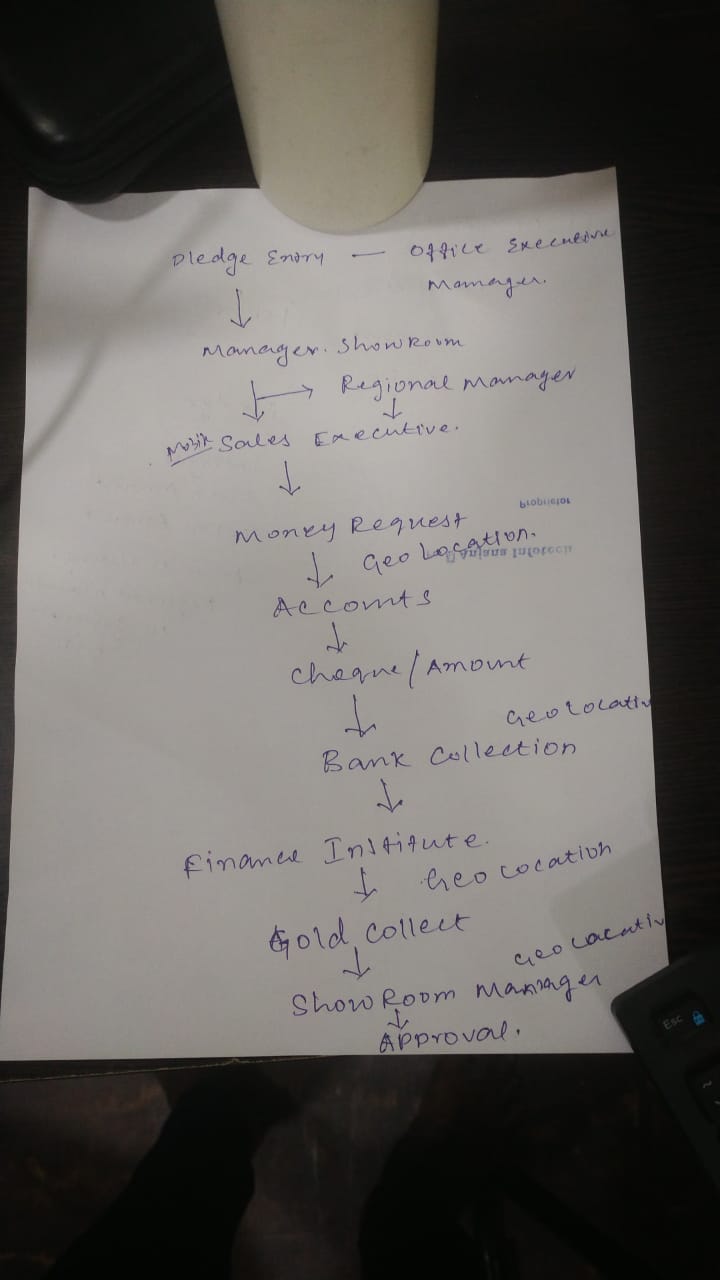 Pledge Entry — Office Executive
Manager.
Manager. ShowRoom
Regional Manager
Sales Executive.
Money Request
Proprietor
Geo Location.
Anjana Infotech
Accounts
Cheque/Amount
Geo Locatin
Bank Collection
Finance Institute.
Geo Location
Gold Collect
Geo Locatin
ShowRoom Manager
Approval.
Esc